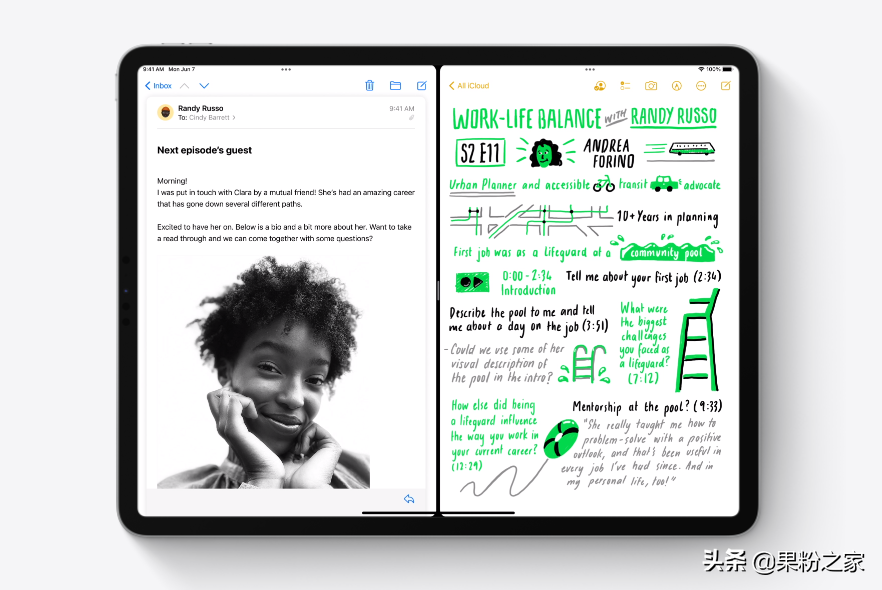 9:41 AM Mon Jun 7
Inbox
Randy Russo
9:41 AM
To: Cindy Barrett >
Next episode's guest
Morning!
I was put in touch with Clara by a mutual friend! She's had an amazing career
that has gone down several different paths.
Excited to have her on. Below is a bio and a bit more about her. Want to take
a read through and we can come together with some questions?
100%
All iCloud
WORK-LIFE BALANCE WITH RANDY RUSSO
S2 E11
ANDREA
FORINO
Urban Planner and accessible transit & advocate
10+ Years in planning
First job was as a lifeguard at a community pool
0:00 - 2:34
Introduction
Tell me about your first job (2:34)
Describe the pool to me and tell
me about a day on the job (3:51)
- Could we use some of her
visual description of
the pool in the intro?
What were
the biggest
challenges
you faced as
a lifeguard?
(7:12)
How else did being
a lifeguard influence
the way you work in
your current career?
(12:29)
Mentorship at the pool? (9:33)
"She really taught me how to
problem-solve with a positive
outlook, and that's been useful in
every job I've had since. And in
my personal life, too!"
头条 @果粉之家